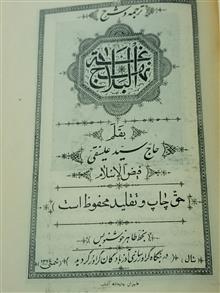 ترجمه و شرح
نهج البلاغة
بقلم
حاج سید علینقی
فیض الاسلام
حق چاپ و تقلید محفوظ است
بخط طاهر خوشنویس
در بنگاه گراورسازی آذربادگان گراور گردید